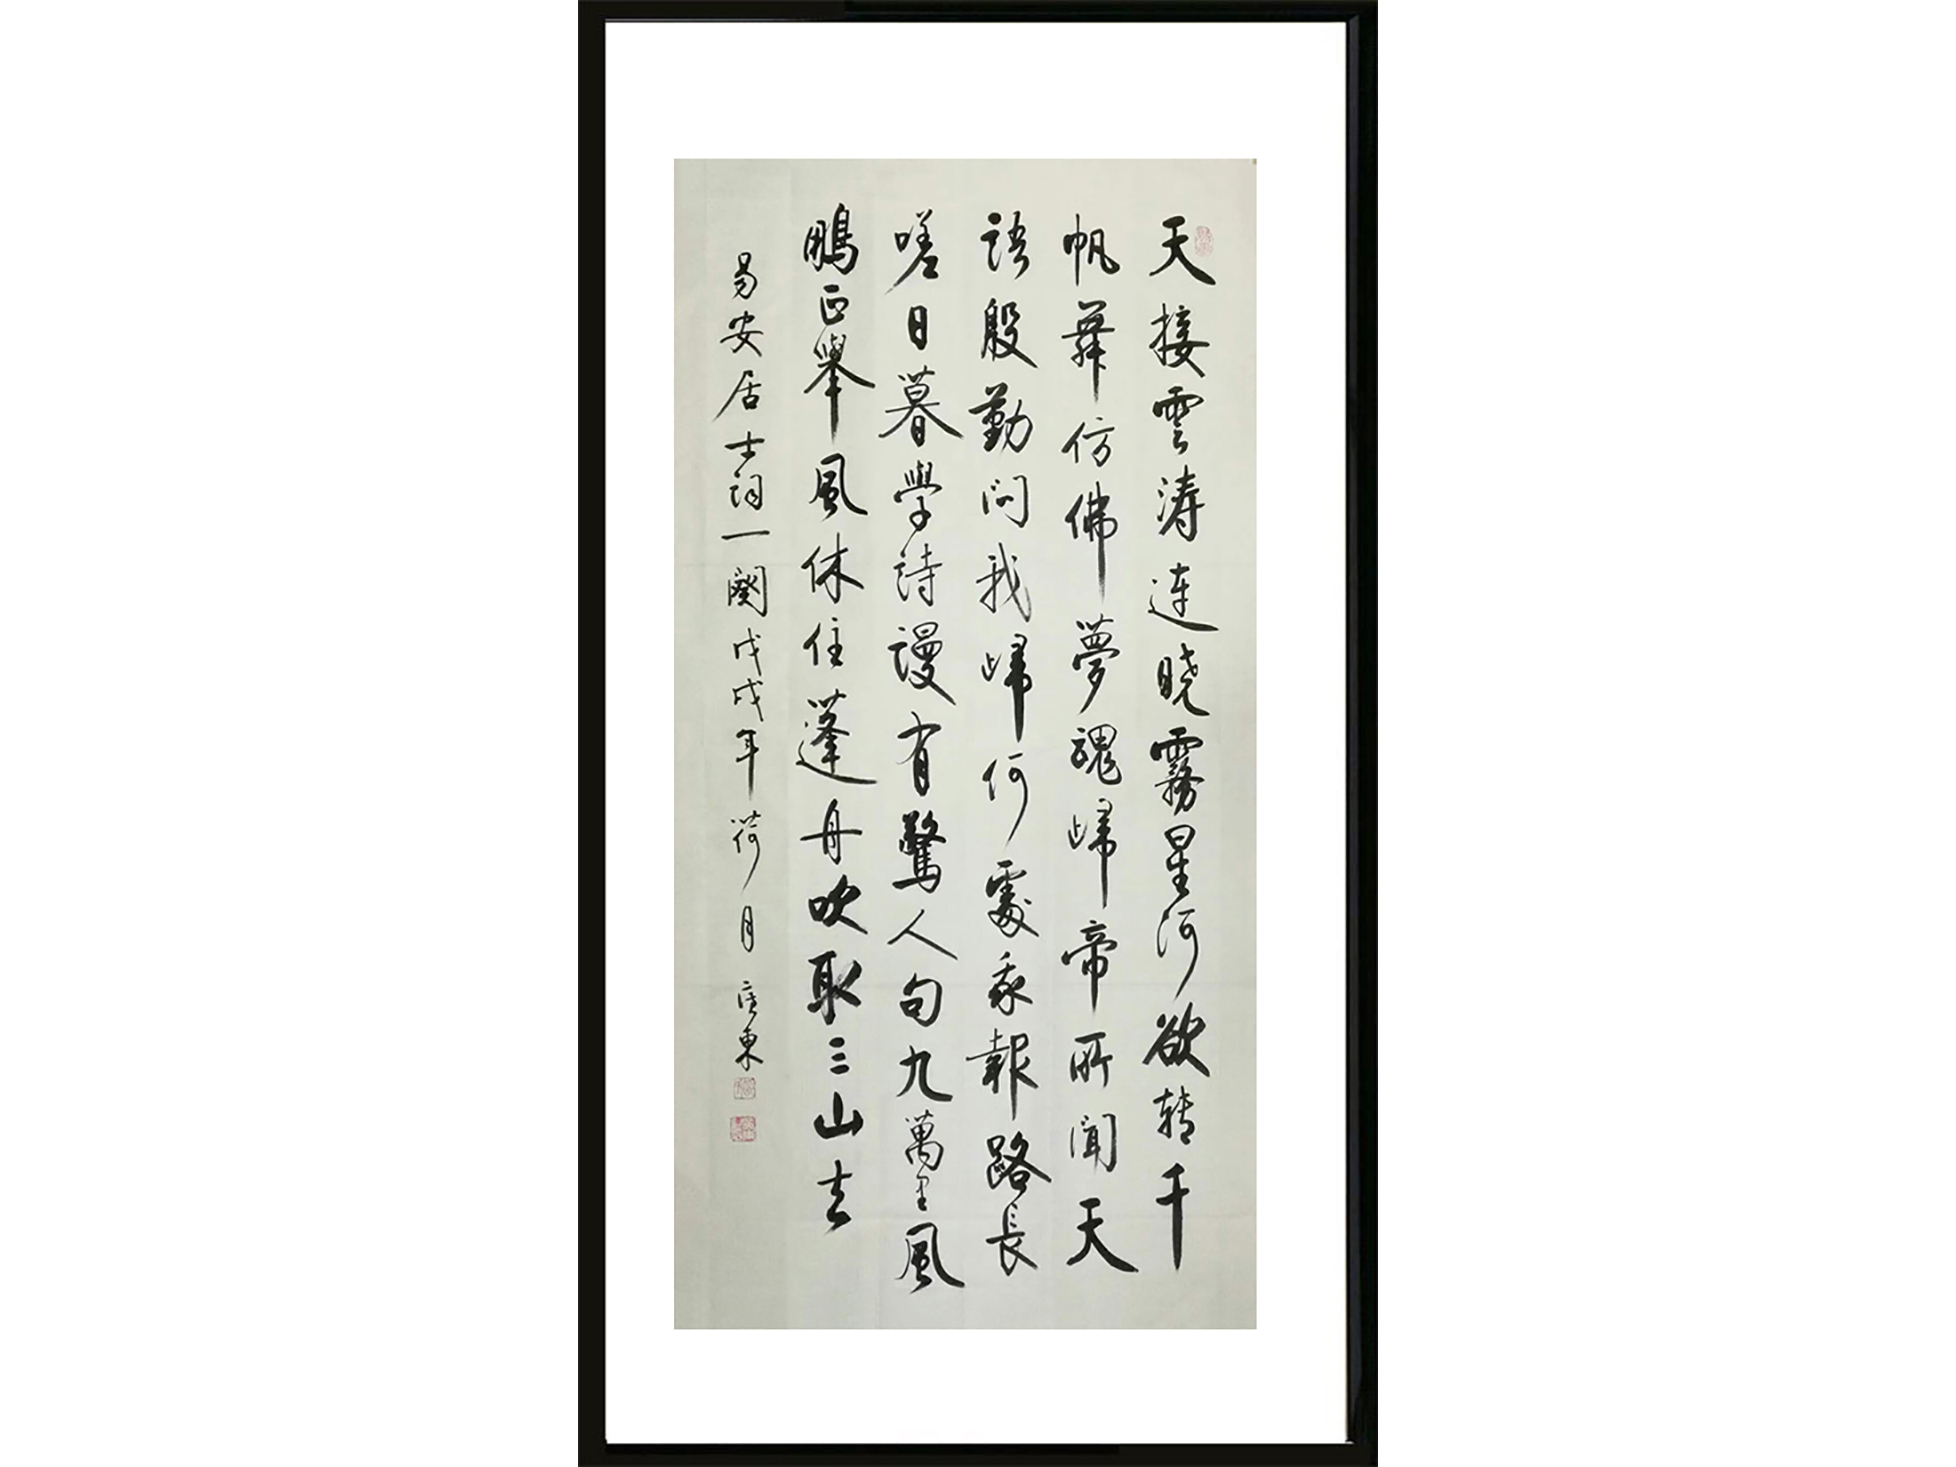 天接雲涛连晓霧星河欲转千
帆舞仿佛夢魂歸帝所聞天
語殷勤问我歸何處我報路長
嗟日暮學詩謾有驚人句九萬里風
鵬正舉風休住蓬舟吹取三山去
易安居士词一闋戊戌年荷月東